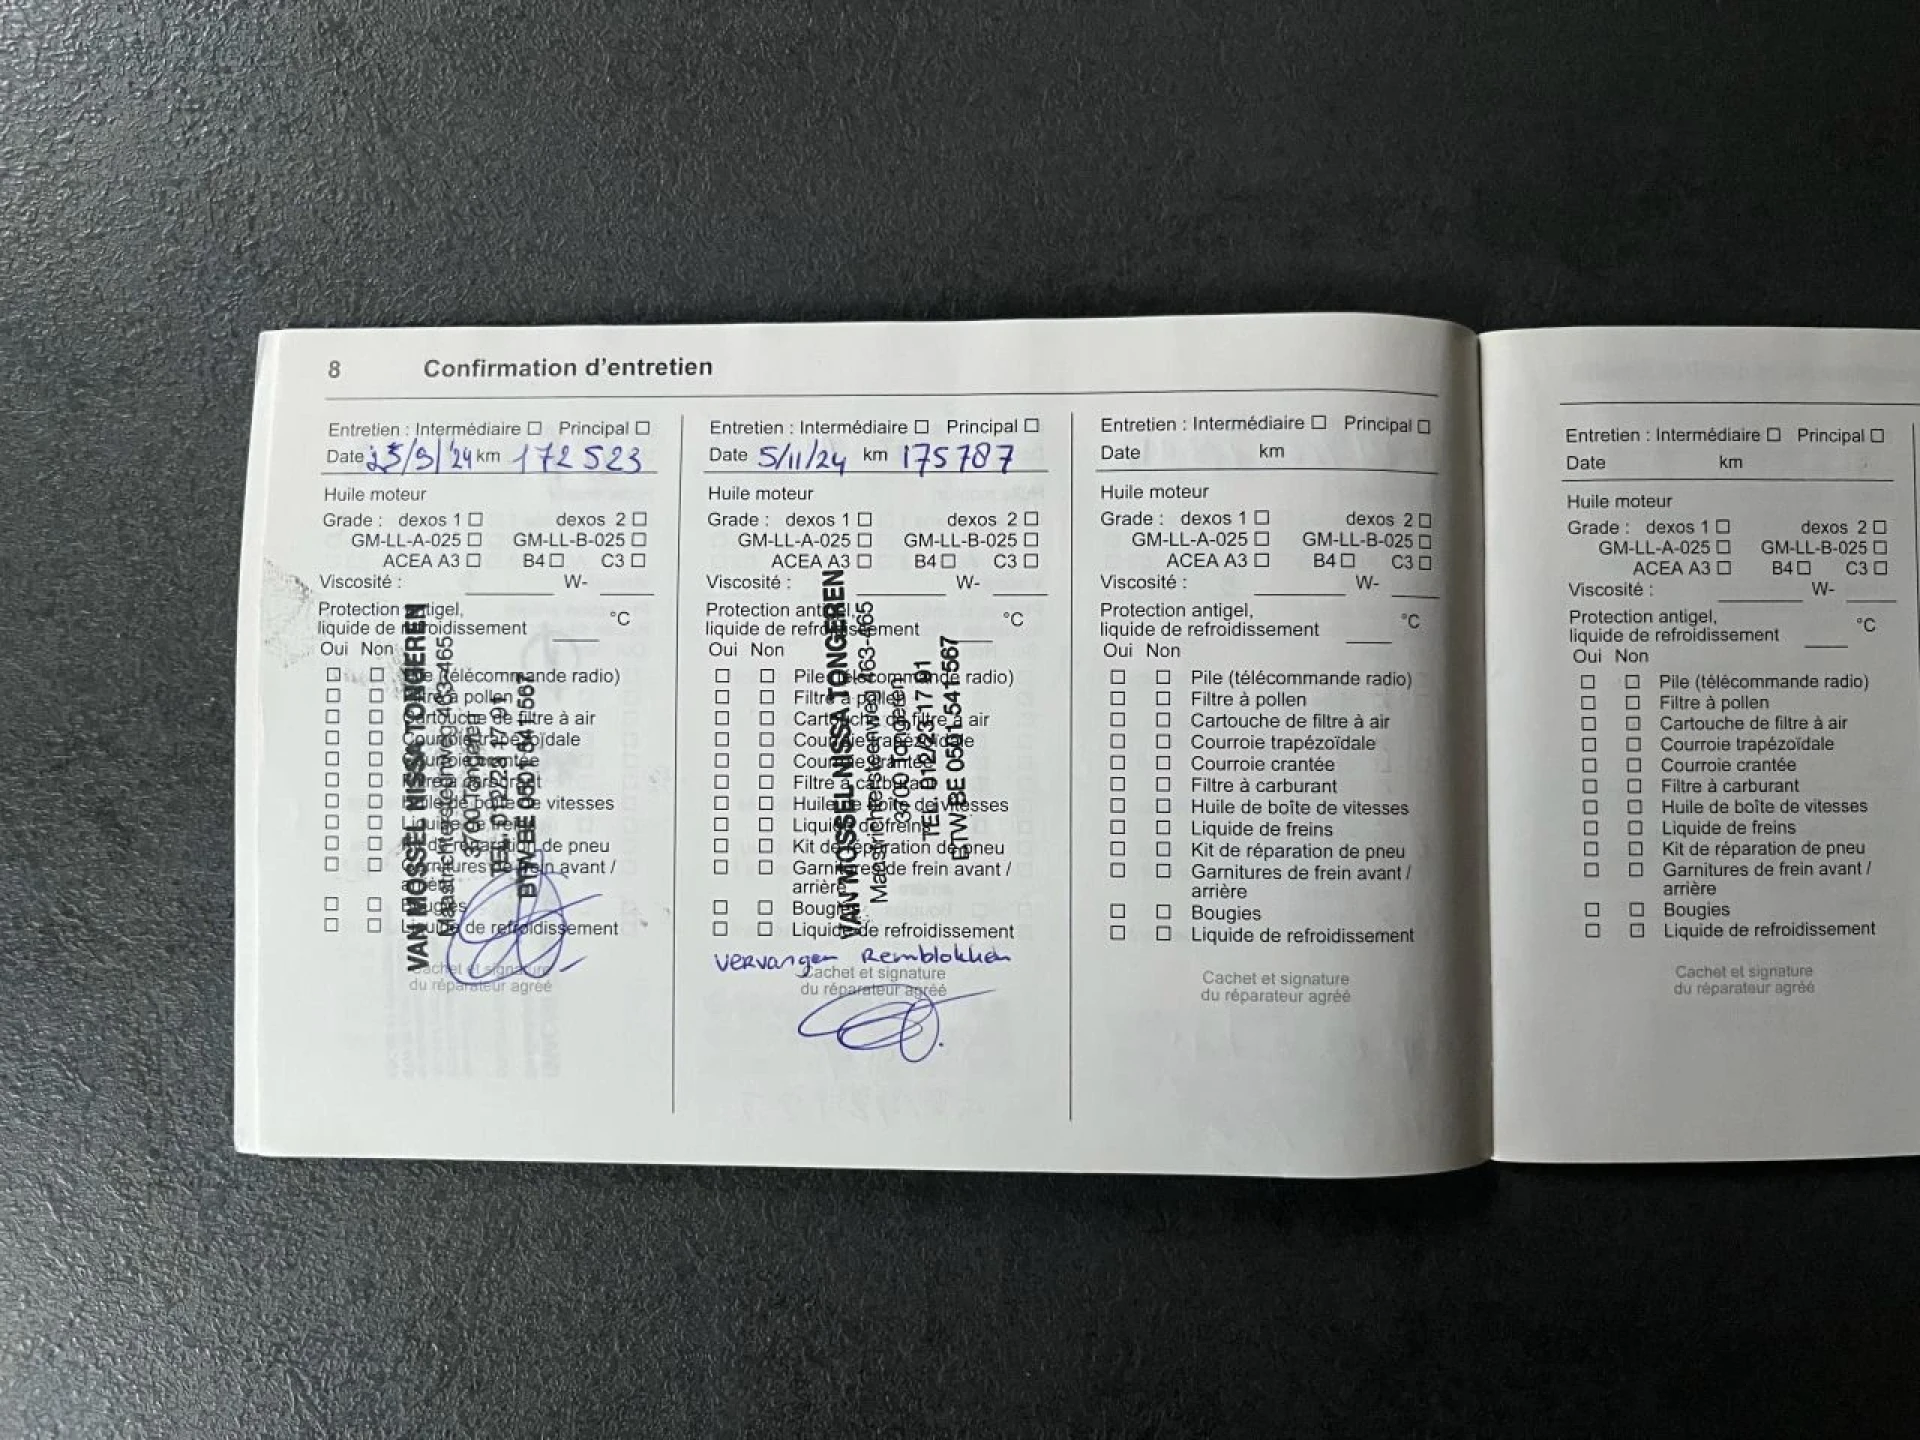 8 Confirmation d'entretien
Entretien : Intermédiaire ☐ Principal ☐
Date 23/9/'24 km 172523
Huile moteur
Grade : dexos 1 ☐ dexos 2 ☐
GM-LL-A-025 ☐ GM-LL-B-025 ☐
ACEA A3 ☐ B4 ☐ C3 ☐
Viscosité : W-
Protection antigel, °C
liquide de refroidissement
Oui Non
☐ ☐ (télécommande radio)
☐ ☐ Filtre à pollen
☐ ☐ Cartouche de filtre à air
☐ ☐ Courroie trapézoïdale
☐ ☐ Courroie crantée
☐ ☐ Filtre à carburant
☐ ☐ Huile de boîte de vitesses
☐ ☐ Liquide de freins
☐ ☐ Kit de réparation de pneu
☐ ☐ Garnitures de frein avant /
arrière
☐ ☐ Bougies
☐ ☐ Liquide de refroidissement
Cachet et signature
du réparateur agréé
VAN MOSSEL NISSA TONGEREN
Maastrichtersteenweg 463-465
3700 Tongeren
TEL 012/23 17 91
BTW BE 0501 541 567
Entretien : Intermédiaire ☐ Principal ☐
Date 5/11/24 km 175787
Huile moteur
Grade : dexos 1 ☐ dexos 2 ☐
GM-LL-A-025 ☐ GM-LL-B-025 ☐
ACEA A3 ☐ B4 ☐ C3 ☐
Viscosité : W-
Protection antigel, °C
liquide de refroidissement
Oui Non
☐ ☐ Pile (télécommande radio)
☐ ☐ Filtre à pollen
☐ ☐ Cartouche de filtre à air
☐ ☐ Courroie trapézoïdale
☐ ☐ Courroie crantée
☐ ☐ Filtre à carburant
☐ ☐ Huile de boîte de vitesses
☐ ☐ Liquide de freins
☐ ☐ Kit de réparation de pneu
☐ ☐ Garnitures de frein avant /
arrière
☐ ☐ Bougies
☐ ☐ Liquide de refroidissement
vervangen Remblokken
Cachet et signature
du réparateur agréé
VAN MOSSEL NISSA TONGEREN
Maastrichtersteenweg 463-465
3700 Tongeren
TEL 012/23 17 91
BTW BE 0501 541 567
Entretien : Intermédiaire ☐ Principal ☐
Date km
Huile moteur
Grade : dexos 1 ☐ dexos 2 ☐
GM-LL-A-025 ☐ GM-LL-B-025 ☐
ACEA A3 ☐ B4 ☐ C3 ☐
Viscosité : W-
Protection antigel, °C
liquide de refroidissement
Oui Non
☐ ☐ Pile (télécommande radio)
☐ ☐ Filtre à pollen
☐ ☐ Cartouche de filtre à air
☐ ☐ Courroie trapézoïdale
☐ ☐ Courroie crantée
☐ ☐ Filtre à carburant
☐ ☐ Huile de boîte de vitesses
☐ ☐ Liquide de freins
☐ ☐ Kit de réparation de pneu
☐ ☐ Garnitures de frein avant /
arrière
☐ ☐ Bougies
☐ ☐ Liquide de refroidissement
Cachet et signature
du réparateur agréé
Entretien : Intermédiaire ☐ Principal ☐
Date km
Huile moteur
Grade : dexos 1 ☐ dexos 2 ☐
GM-LL-A-025 ☐ GM-LL-B-025 ☐
ACEA A3 ☐ B4 ☐ C3 ☐
Viscosité : W-
Protection antigel, °C
liquide de refroidissement
Oui Non
☐ ☐ Pile (télécommande radio)
☐ ☐ Filtre à pollen
☐ ☐ Cartouche de filtre à air
☐ ☐ Courroie trapézoïdale
☐ ☐ Courroie crantée
☐ ☐ Filtre à carburant
☐ ☐ Huile de boîte de vitesses
☐ ☐ Liquide de freins
☐ ☐ Kit de réparation de pneu
☐ ☐ Garnitures de frein avant /
arrière
☐ ☐ Bougies
☐ ☐ Liquide de refroidissement
Cachet et signature
du réparateur agréé